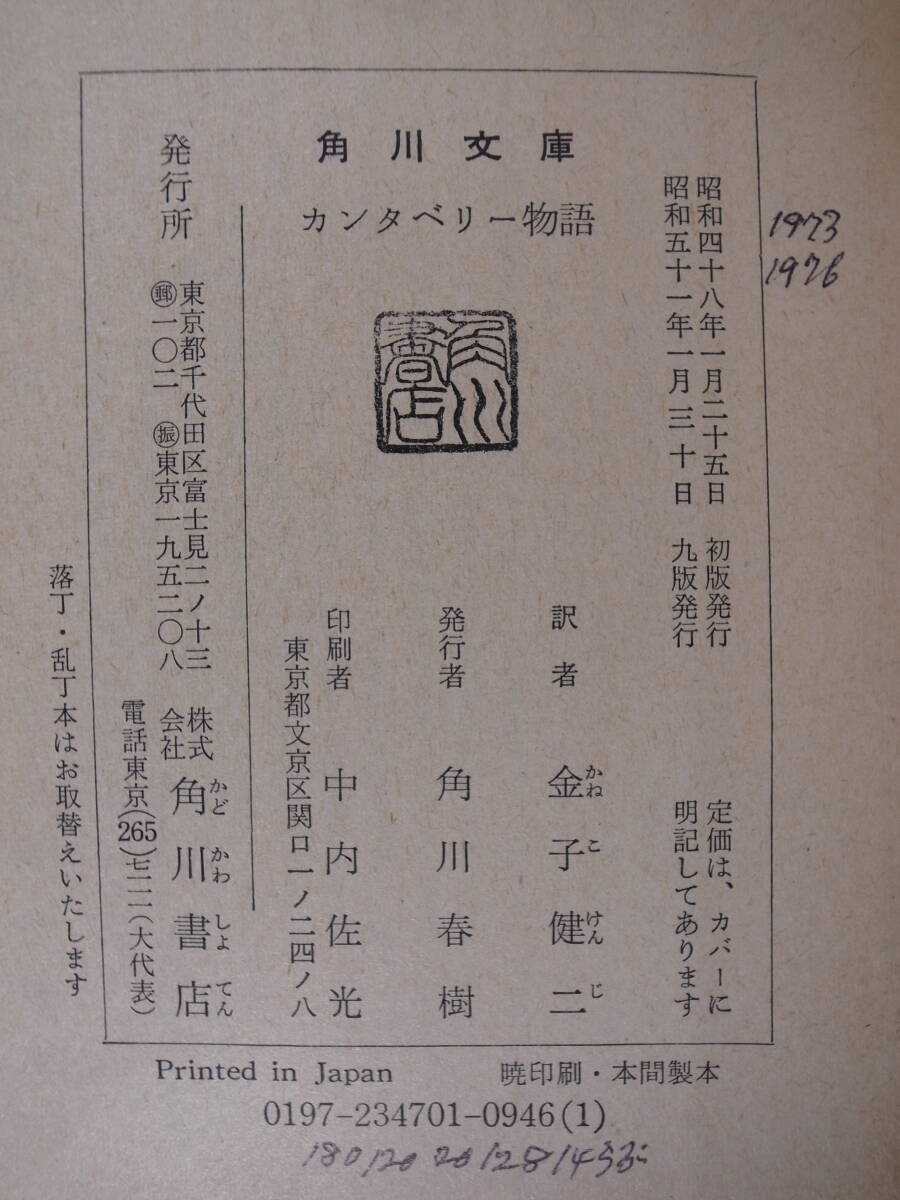 角川文庫
カンタベリー物語
昭和四十八年一月二十五日 初版発行
昭和五十一年一月三十日 九版発行
1973
1976
定価は、カバーに
明記してあります
訳者 金子健二
かねこけんじ
発行者 角川春樹
印刷者 中内佐光
東京都文京区関口一ノ二四ノ八
角川書店
発行所
東京都千代田区富士見二ノ十三
郵一〇二 振東京一九五二〇八
株式会社 角川書店
かどかわしよてん
電話東京(265)七一一一(大代表)
落丁・乱丁本はお取替えいたします
Printed in Japan
暁印刷・本間製本
0197-234701-0946(1)